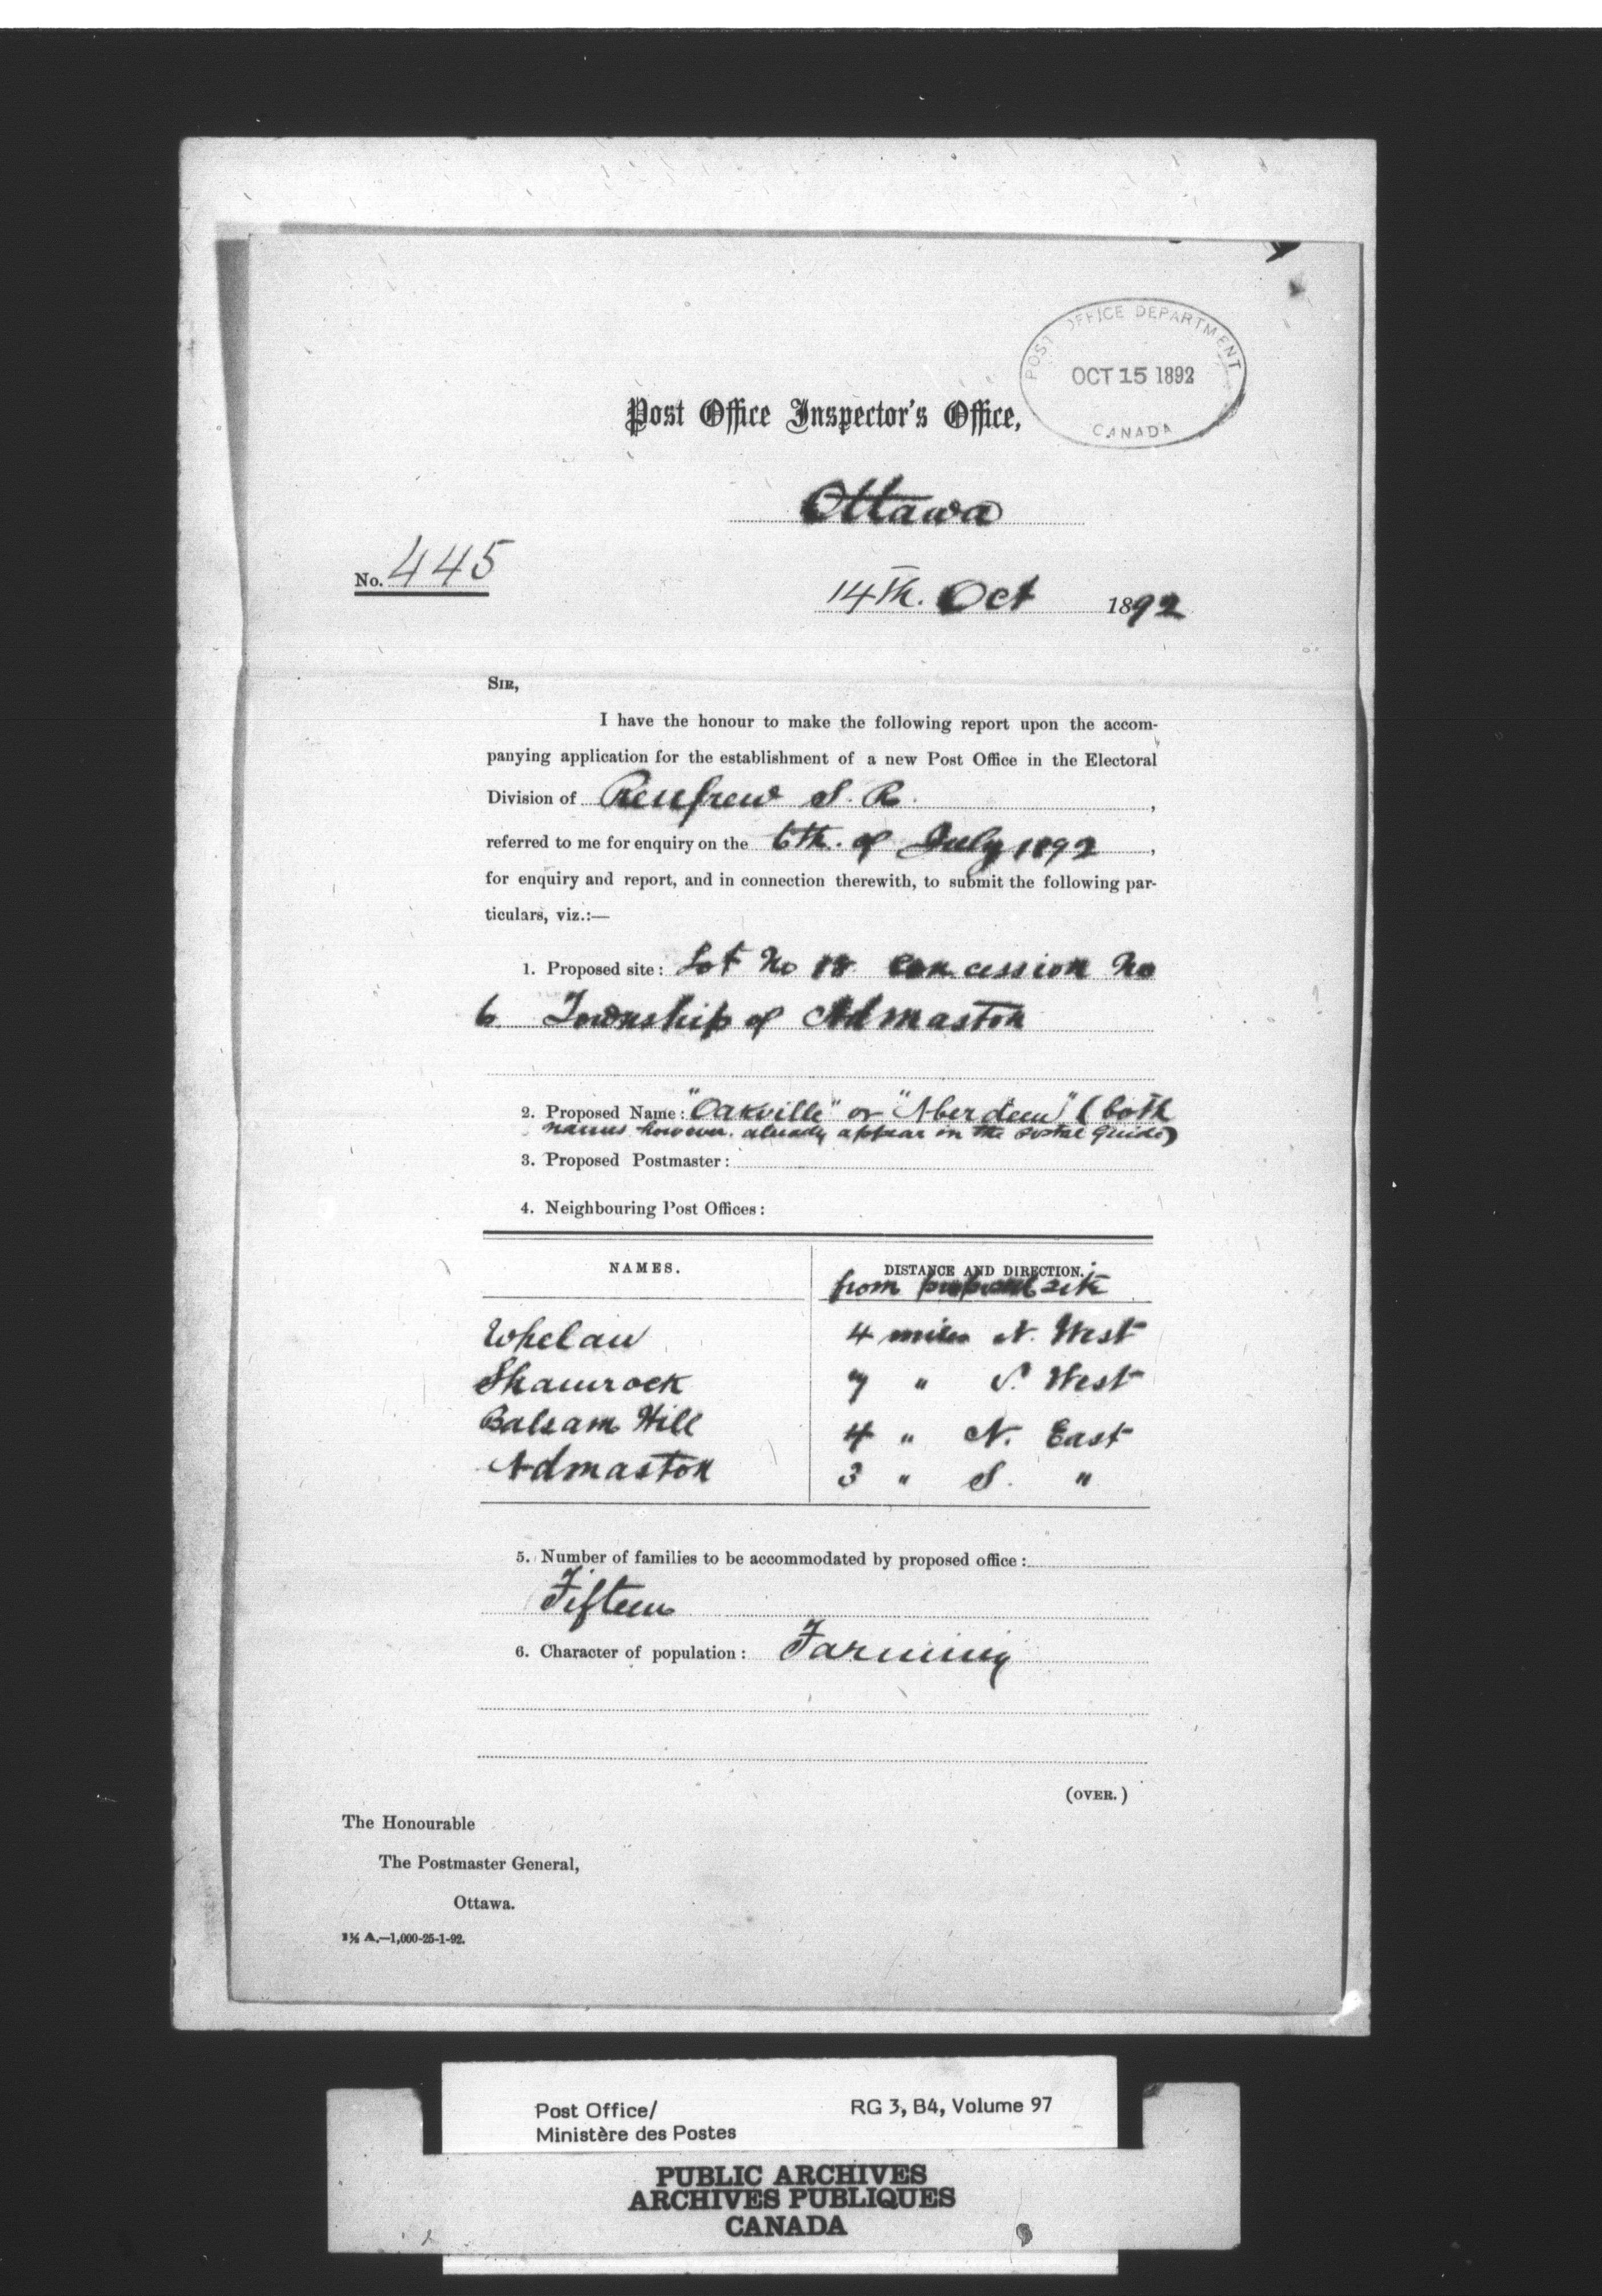 POST OFFICE DEPARTMENT
OCT 15 1892
CANADA
Post Office Inspector's Office,
Ottawa
No. 445
14th. Oct 1892
SIR,
I have the honour to make the following report upon the accom-
panying application for the establishment of a new Post Office in the Electoral
Division of Renfrew S. R.,
referred to me for enquiry on the 6th. of July 1892,
for enquiry and report, and in connection therewith, to submit the following par-
ticulars, viz.:—
1. Proposed site: Lot No 18 Concession No
6 Township of Admaston
2. Proposed Name: "Oakville" or "Aberdeen" (both
names however already appear in the Postal Guide)
3. Proposed Postmaster:
4. Neighbouring Post Offices:
NAMES. DISTANCE AND DIRECTION.
from proposed site
Whelan 4 miles N. West
Shamrock 7 " S. West
Balsam Hill 4 " N. East
Admaston 3 " S. "
5. Number of families to be accommodated by proposed office:
Fifteen
6. Character of population: Farming
(OVER.)
The Honourable
The Postmaster General,
Ottawa.
1½ A.—1,000-25-1-92.
Post Office/ RG 3, B4, Volume 97
Ministère des Postes
PUBLIC ARCHIVES
ARCHIVES PUBLIQUES
CANADA